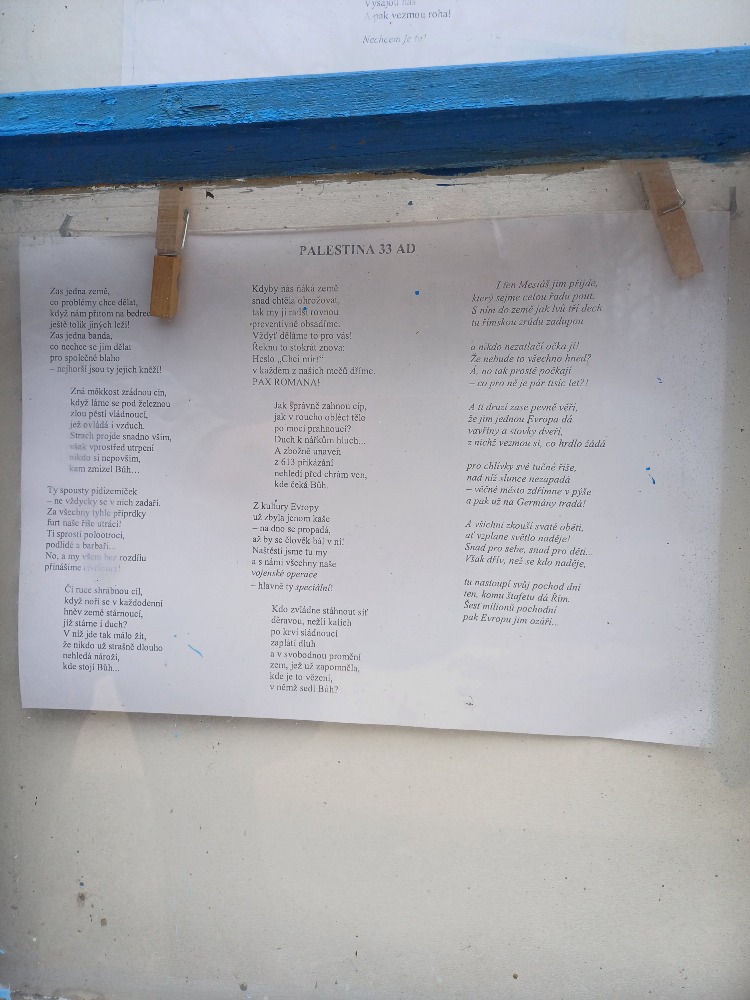 Vysajou nás
A pak vezmou roha!
Nechcem je tu!
PALESTINA 33 AD
Zas jedna země,
co problémy chce dělat,
když nám přitom na bedrech
ještě tolik jiných leží!
Zas jedna banda,
co nechce se jim dělat
pro společné blaho
– nejhorší jsou ty jejich kněží!
Zná měkkost zrádnou čin,
když láme se pod železnou
zlou pěstí vládnoucí,
jež ovládá i vzduch.
Strach projde snadno vším,
však vprostřed utrpení
nikdo si nepovšim,
kam zmizel Bůh...
Ty spousty pidizemiček
– ne vždycky se v nich zadaří.
Za všechny tyhle príprdky
furt naše říše utrácí!
Ti sprostí polootroci,
podlidé a barbaři...
No, a my všem bez rozdílu
přinášíme civilizaci!
Čí ruce shrábnou cíl,
když noří se v každodenní
hněv země stárnoucí,
již stárne i duch?
V níž jde tak málo žít,
že nikdo už strašně dlouho
nehledá nároží,
kde stojí Bůh...
Kdyby nás ňáká země
snad chtěla ohrožovat,
tak my ji radši rovnou
preventivně obsadíme.
Vždyť děláme to pro vás!
Řeknu to stokrát znova:
Heslo „Chci mír!“
v každém z našich mečů dříme.
PAX ROMANA!
Jak správně zahnout cíp,
jak v roucho obléct tělo
po moci prahnoucí?
Duch k nářkům hluch...
A zbožně unaven
z 613 přikázání
nehledí před chrám ven,
kde čeká Bůh.
Z kultury Evropy
už zbyla jenom kaše
– na dno se propadá,
až by se člověk bál v ní!
Naštěstí jsme tu my
a s námi všechny naše
vojenské operace
– hlavně ty speciální!
Kdo zvládne stáhnout síť
děravou, nežli kalich
po krvi sládnoucí
zaplatí dluh
a v svobodnou promění
zem, jež už zapomněla,
kde je to vězení,
v němž sedí Bůh?
I ten Mesiáš jim přijde,
který sejme celou řadu pout.
S ním do země jak lvů tři dech
tu římskou zrůdu zadupou
a nikdo nezatlačí očka jí!
Že nebude to všechno hned?
A, no tak prostě počkají
– co pro ně je pár tisíc let?!
A ti druzí zase pevně věří,
že jim jednou Evropa dá
vavříny a stovky dveří,
z nichž vezmou si, co hrdlo žádá
pro chlívky své tučné říše,
nad níž slunce nezapadá
– věčné město zdřímne v pýše
a pak už na Germány tradá!
A všichni zkouší svaté oběti,
ať vzplane světlo naděje!
Snad pro sebe, snad pro děti...
Však dřív, než se kdo naděje,
tu nastoupí svůj pochod dní
ten, komu štafetu dá Řím.
Šest milionů pochodní
pak Evropu jim ozáří...